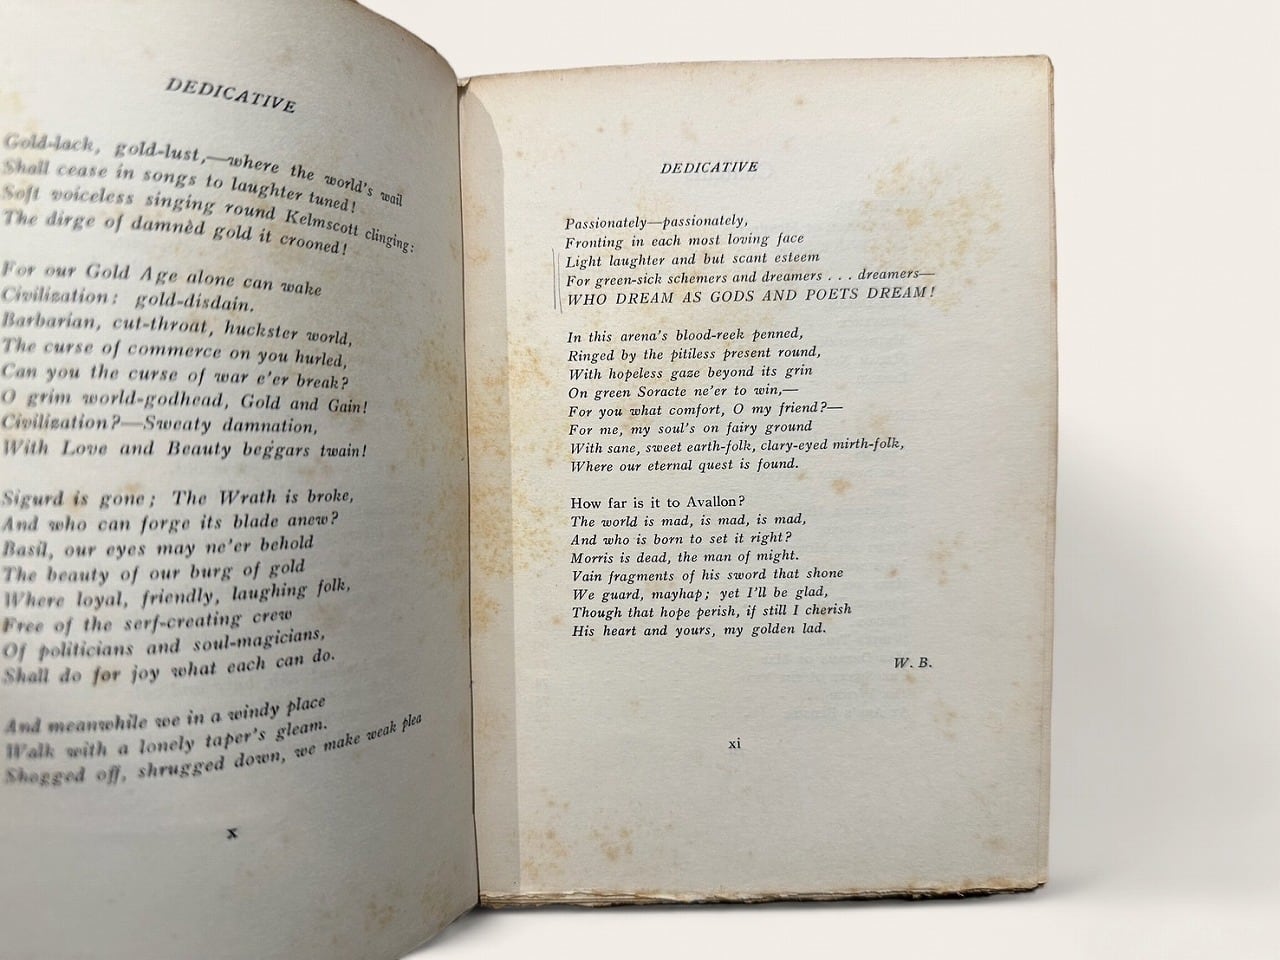 DEDICATIVE
Gold-lack, gold-lust,—where the world's wail
Shall cease in songs to laughter tuned!
Soft voiceless singing round Kelmscott clinging:
The dirge of damnèd gold it crooned!
For our Gold Age alone can wake
Civilization: gold-disdain.
Barbarian, cut-throat, huckster world,
The curse of commerce on you hurled,
Can you the curse of war e'er break?
O grim world-godhead, Gold and Gain!
Civilization?—Sweaty damnation,
With Love and Beauty beggars twain!
Sigurd is gone; The Wrath is broke,
And who can forge its blade anew?
Basil, our eyes may ne'er behold
The beauty of our burg of gold
Where loyal, friendly, laughing folk,
Free of the serf-creating crew
Of politicians and soul-magicians,
Shall do for joy what each can do.
And meanwhile we in a windy place
Walk with a lonely taper's gleam.
Shogged off, shrugged down, we make weak plea
x
DEDICATIVE
Passionately—passionately,
Fronting in each most loving face
Light laughter and but scant esteem
For green-sick schemers and dreamers . . . dreamers—
WHO DREAM AS GODS AND POETS DREAM!
In this arena's blood-reek penned,
Ringed by the pitiless present round,
With hopeless gaze beyond its grin
On green Soracte ne'er to win,—
For you what comfort, O my friend?—
For me, my soul's on fairy ground
With sane, sweet earth-folk, clary-eyed mirth-folk,
Where our eternal quest is found.
How far is it to Avallon?
The world is mad, is mad, is mad,
And who is born to set it right?
Morris is dead, the man of might.
Vain fragments of his sword that shone
We guard, mayhap; yet I'll be glad,
Though that hope perish, if still I cherish
His heart and yours, my golden lad.
W. B.
xi